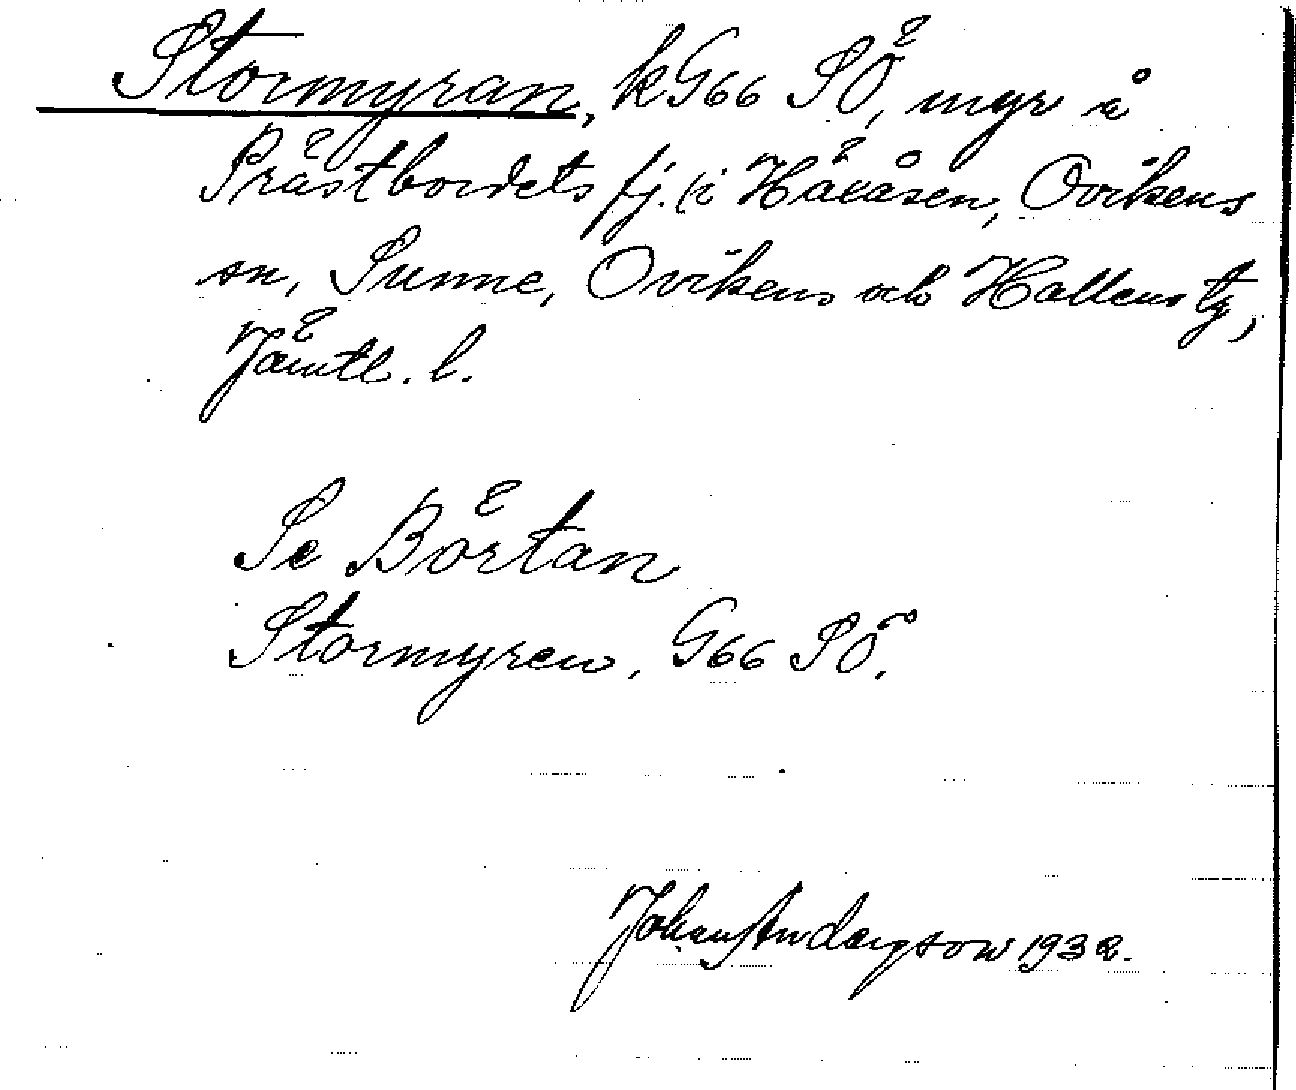 Stormyran, k G66 SÖ, myr å
Prästbordets fj. (i Häxåsen, Ovikens
sn, Sunne, Ovikens och Hallens tg,
Jämtl. l.
Se Börtan
Stormyren, G66 SÖ.
1932.